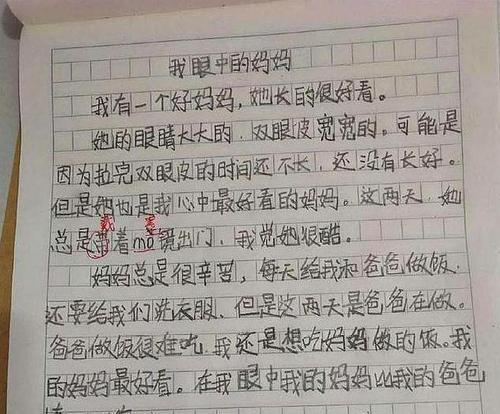 我眼中的妈妈
我有一个好妈妈，她长的很好看。
她的眼睛大大的，双眼皮宽宽的。可能是
因为拉完双眼皮的时间还不长，还没有长好。
但是她也是我心中最好看的妈妈。这两天，她
戴 墨
总是带着mo镜出门，我觉她很酷。
妈妈总是很辛苦，每天给我和爸爸做饭，
还要给我们洗衣服，但是这两天是爸爸在做。
爸爸做饭很难吃，我还是想吃妈妈做的饭。我
的妈妈最好看。在我眼中我的妈妈比我的爸爸